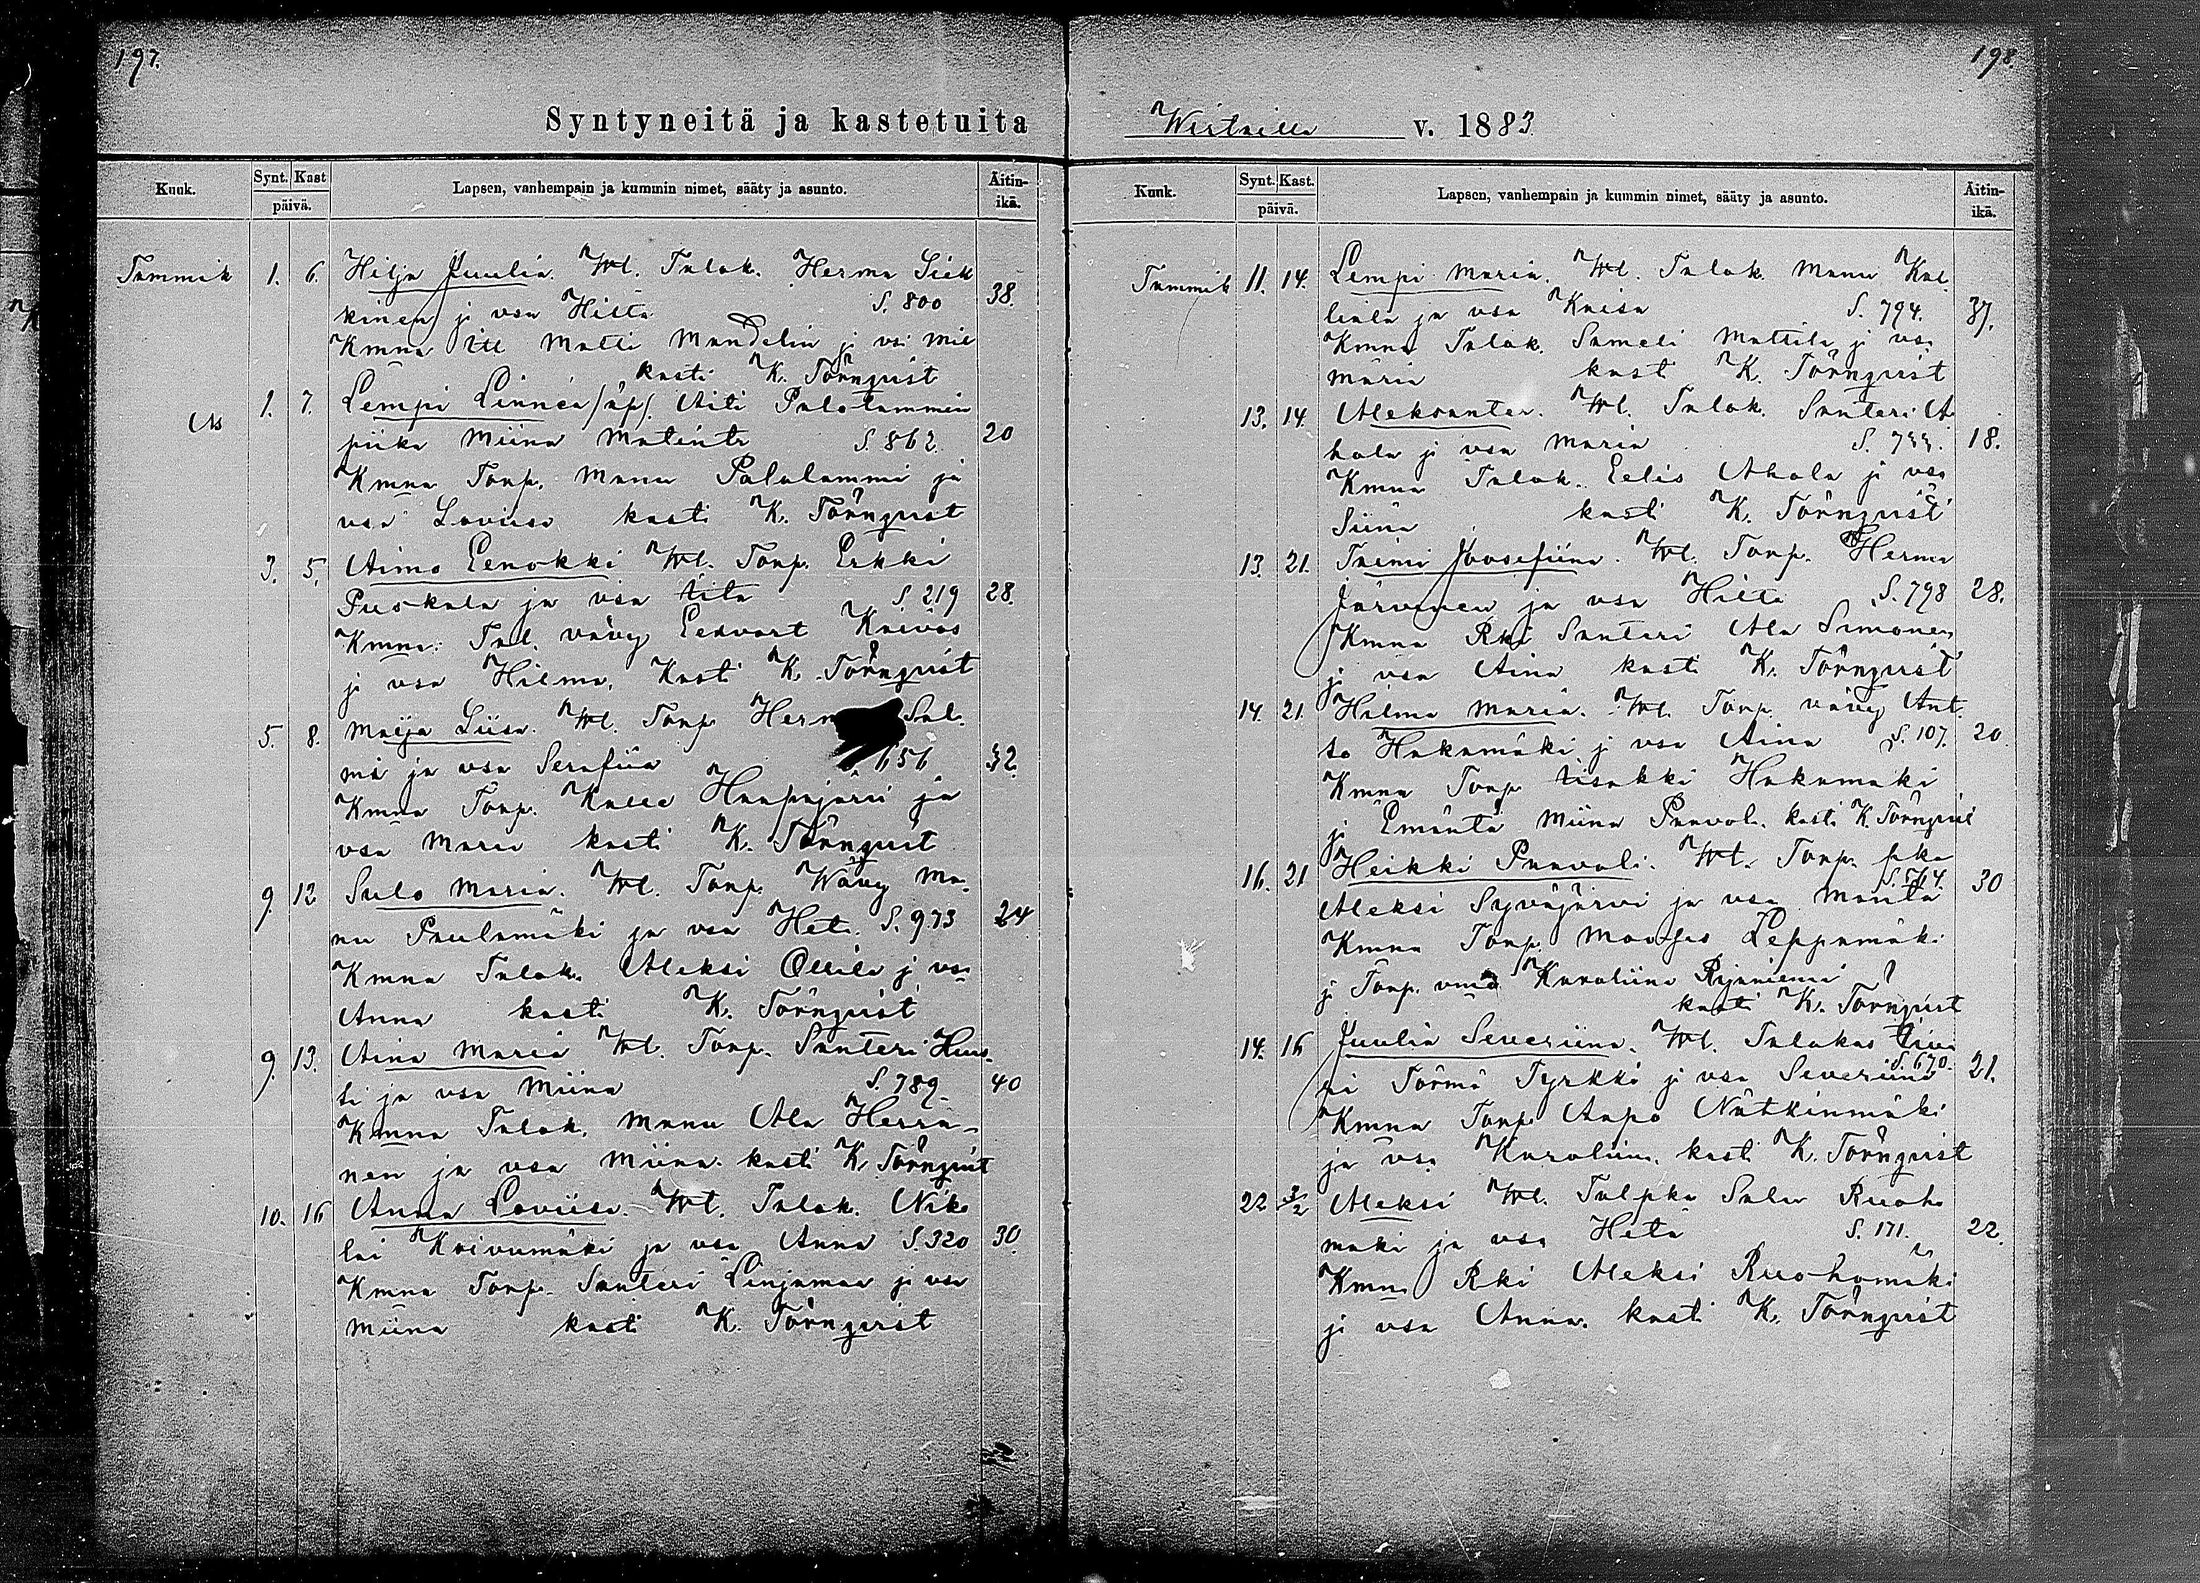 197.
Syntyneitä ja kastetuita
Kuuk. Synt. Kast päivä. Lapsen, vanhempain ja kummin nimet, sääty ja asunto. Äitin-ikä.
Tammik 1. 6. Hilja Juulia. Wl. Talok. Herma Siek
kinen j vsa Hilta S. 800 38.
Kmna Itl Matti Mandelin j va: Mii
kasti K. Törnqvist
1. 7. Lempi Linnéa /äp/. Äiti Palolammin
piika Miina Matintr S. 862. 20
Kmna Torp. Manu Palolammi ja
vsa Loviisa kasti K. Törnqvist
3. 5. Aimo Eenokki Wl. Torp. Erkki
Puskala ja vsa Iita S. 219 28.
Kmna: Tal. vävy Eedvart Knivös
j vsa Hilma. Kasti K. Törnqvist
5. 8. Maija Liisa. Wl. Torp Herm Sal.
mi ja vsa Serafiia 656 32.
Kmna Torp. Kalle Haapajärvi ja
vsa Maria kasti K. Törnqvist
9. 12 Sulo Maria. Wl. Torp. Wävy Ma-
nu Paulamäki ja vsa Heta. S. 973 24
Kmna Talok. Aleksi Ollila j vsa
Anna kasti K. Törnqvist
9. 13. Aina Maria Wl. Torp. Santeri Huus-
ti ja vsa Miina S. 789. 40
Kmna Talok. Manu Ala Herra-
nen ja vsa Miina. kasti K. Törnqvist
10. 16 Anna Loviisa. Wl. Talok. Niko
lai Koivumäki ja vsa Anna S. 320 30.
Kmna Torp. Santeri Linjamaa j vsa
Miina kasti K. Törnqvist
198.
Wirtailla v. 1883
Kuuk. Synt. Kast. päivä. Lapsen, vanhempain ja kummin nimet, sääty ja asunto. Äitin-ikä.
Tammik 11. 14. Lempi Maria. Wl. Talok. Manu Kal-
liala ja vsa Kaisa S. 794. 37.
Kmna Talok. Sameli Mattila j vsa
Maria kast K. Törnqvist
13. 14. Aleksanter. Wl. Talok. Santeri A
hola j vsa Maria S. 733. 18.
Kmna Talok. Eelis Ahola j vsa
Siina kasti K. Törnqvist
13. 21. Taimi Joosefiina. Wl. Torp. Herma
Järvinen ja vsa Hilta S. 798 28.
Kmna Rki Santeri Ala Simonen
j vsa Aina kasti K. Törnqvist
14. 21. Hilma Maria. Wl. Torp. vävy Ant-
to Hakamäki j vsa Aina S. 107. 20.
Kmna Torp Iisakki Hakamaki
j Emäntä Miina Paavol. kasti K. Törnqvist
16. 21 Heikki Paavali. Wl. Torp. pka
Aleksi Syväjärvi ja vsa Manta S. 564. 30
Kmna Torp. Mooses Leppamäki
j Torp. Karoliina Rajaniemi
kasti K. Törnqvist
14. 16 Juulia Severiina. Wl. Talokas Iiva
ri Törmä Tyrkkö j vsa Severiina S. 670. 21.
Kmna Torp Aapo Nätkinmäki
ja vsa Karoliina. kast K. Törnqvist
22 3/2 Aleksi Wl. Talpka Salu Ruoho
maki ja vsa Heta S. 171. 22.
Kmna Rki Aleksi Ruohomäki
j vsa Anna. kasti K. Törnqvist